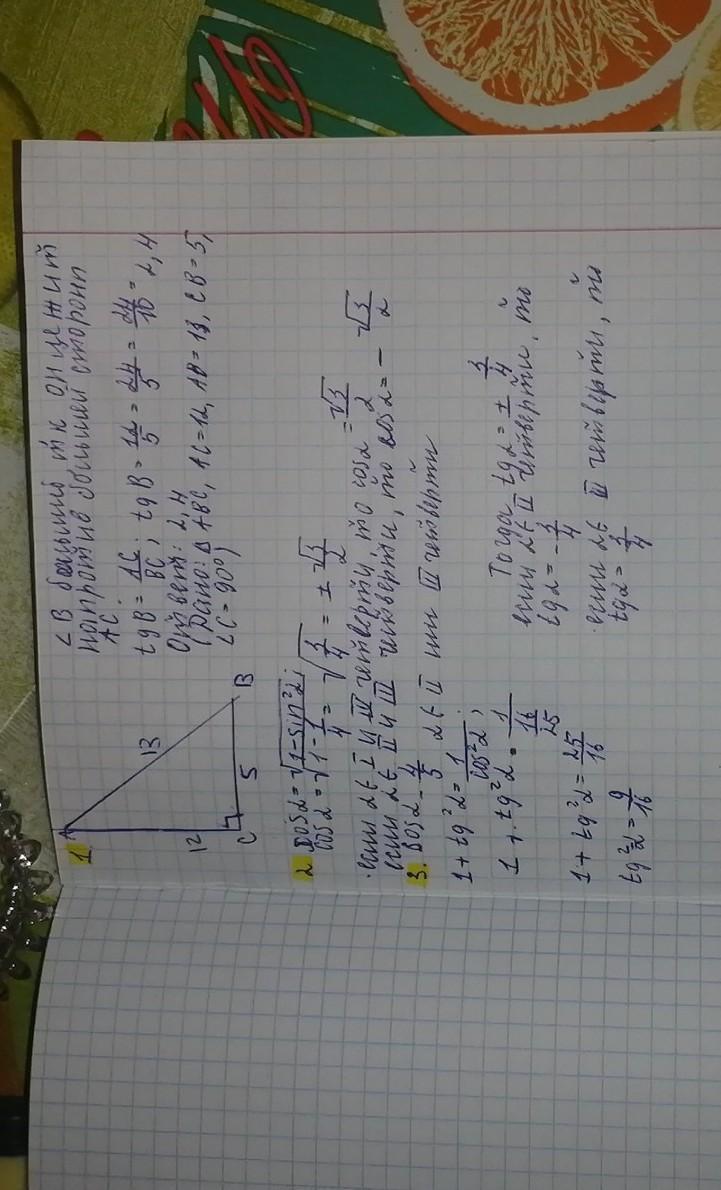 1.
A
13
12
5
C
B
∠B больший т к он лежит
напротив большей стороны
AC
tgB = AC/BC; tgB = 12/5 = 24/5 = 24/10 = 2,4
Ответ: 2,4
(Дано: Δ ABC, AC=12, AB=13, CB=5,
∠C=90°)
2. cosα = √1-sin²α;
cosα = √1-1/4 = √3/4 = ± √3/2
если α ∈ I и IV четверти, то cosα = √3/2
если α ∈ II и III четверти, то cosα = - √3/2
3. cosα - 4/5 α ∈ II или III четверти
1 + tg²α = 1/cos²α;
1 + tg²α = 1/16/25
1 + tg²α = 25/16
tg²α = 9/16
Тогда tgα = ± 3/4
если α ∈ II четверти, то
tgα = - 3/4
если α ∈ III четверти, то
tgα = 3/4